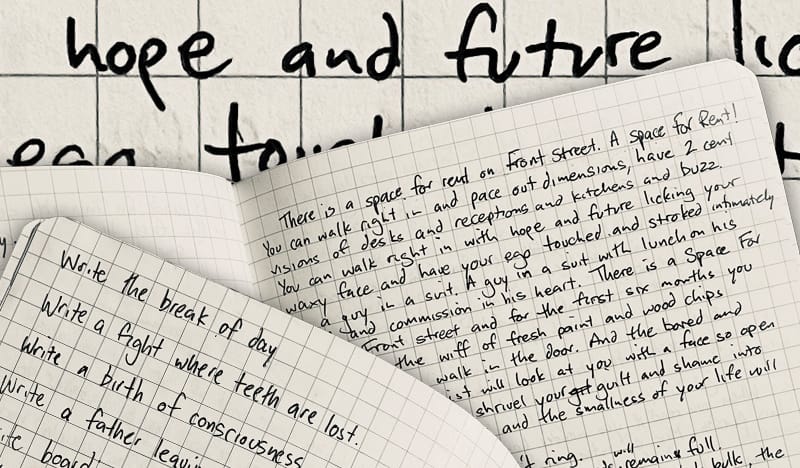 hope and future lic
ego touch
There is a space for rent on Front Street. A space for Rent!
You can walk right in and pace out dimensions, have 2 cent
visions of desks and receptions and kitchens and buzz.
You can walk right in with hope and future licking your
waxy face and have your ego touched and stroked intimately
a guy in a suit. A guy in a suit with lunch on his
and commission in his heart. There is a Space For
Front street and for the first six months you
the wiff of fresh paint and wood chips
walk in the door. And the bored and
ist will look at you with a face so open
shrivel your guilt and shame into
and the smallness of your life will
't ring. will
remains full
bulk, the
Write the break of day
Write a fight where teeth are lost.
Write a birth of consciousness
Write a father leavi
ite board